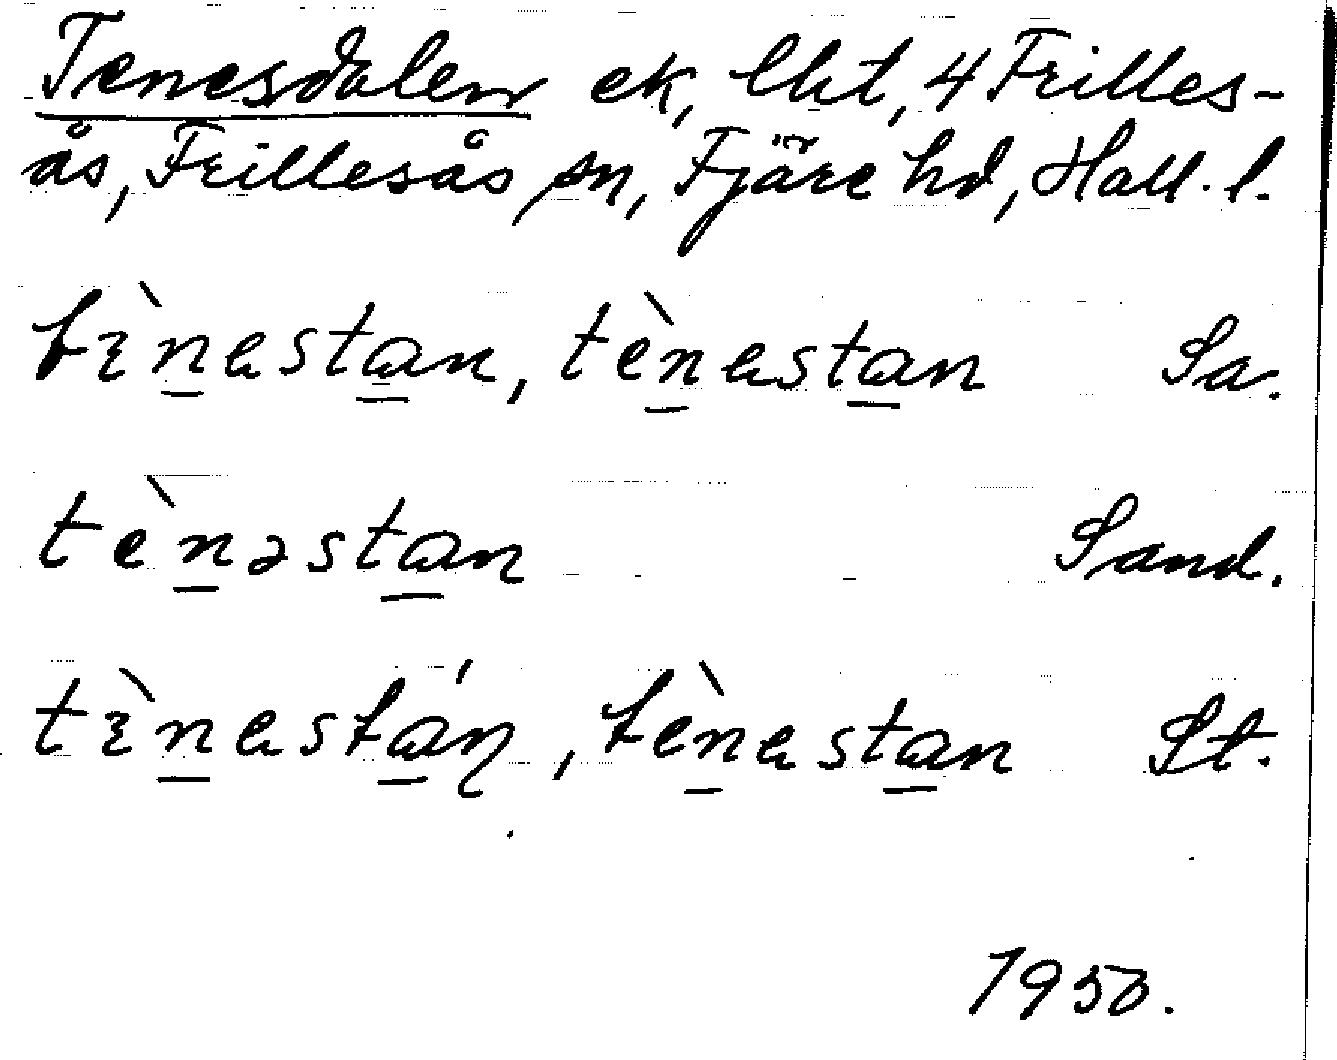 Tenesdalen ek, lht, 4 Frilles-
ås, Frillesås sn, Fjäre hd, Hall. l.
tɛ̀nestan, tènestan Sa.
tènəstan Sand.
tɛ̀nestáŋ, tènestan St.
1950.